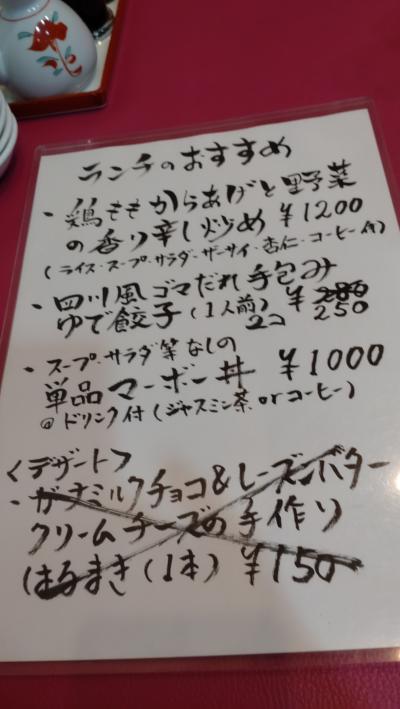 ランチのおすすめ
・鶏ももからあげと野菜
の香り辛し炒め ¥1200
(ライス・スープ・サラダ・ザーサイ・杏仁・コーヒー付)
・四川風ゴマだれ手包み
ゆで餃子(1人前) ¥280
2コ 250
・スープ・サラダ等なしの
単品マーボー丼 ¥1000
@ドリンク付(ジャスミン茶orコーヒー)
<デザート>
・ガーナミルクチョコ&レーズンバター
クリームチーズの手作り
はるまき(1本) ¥150